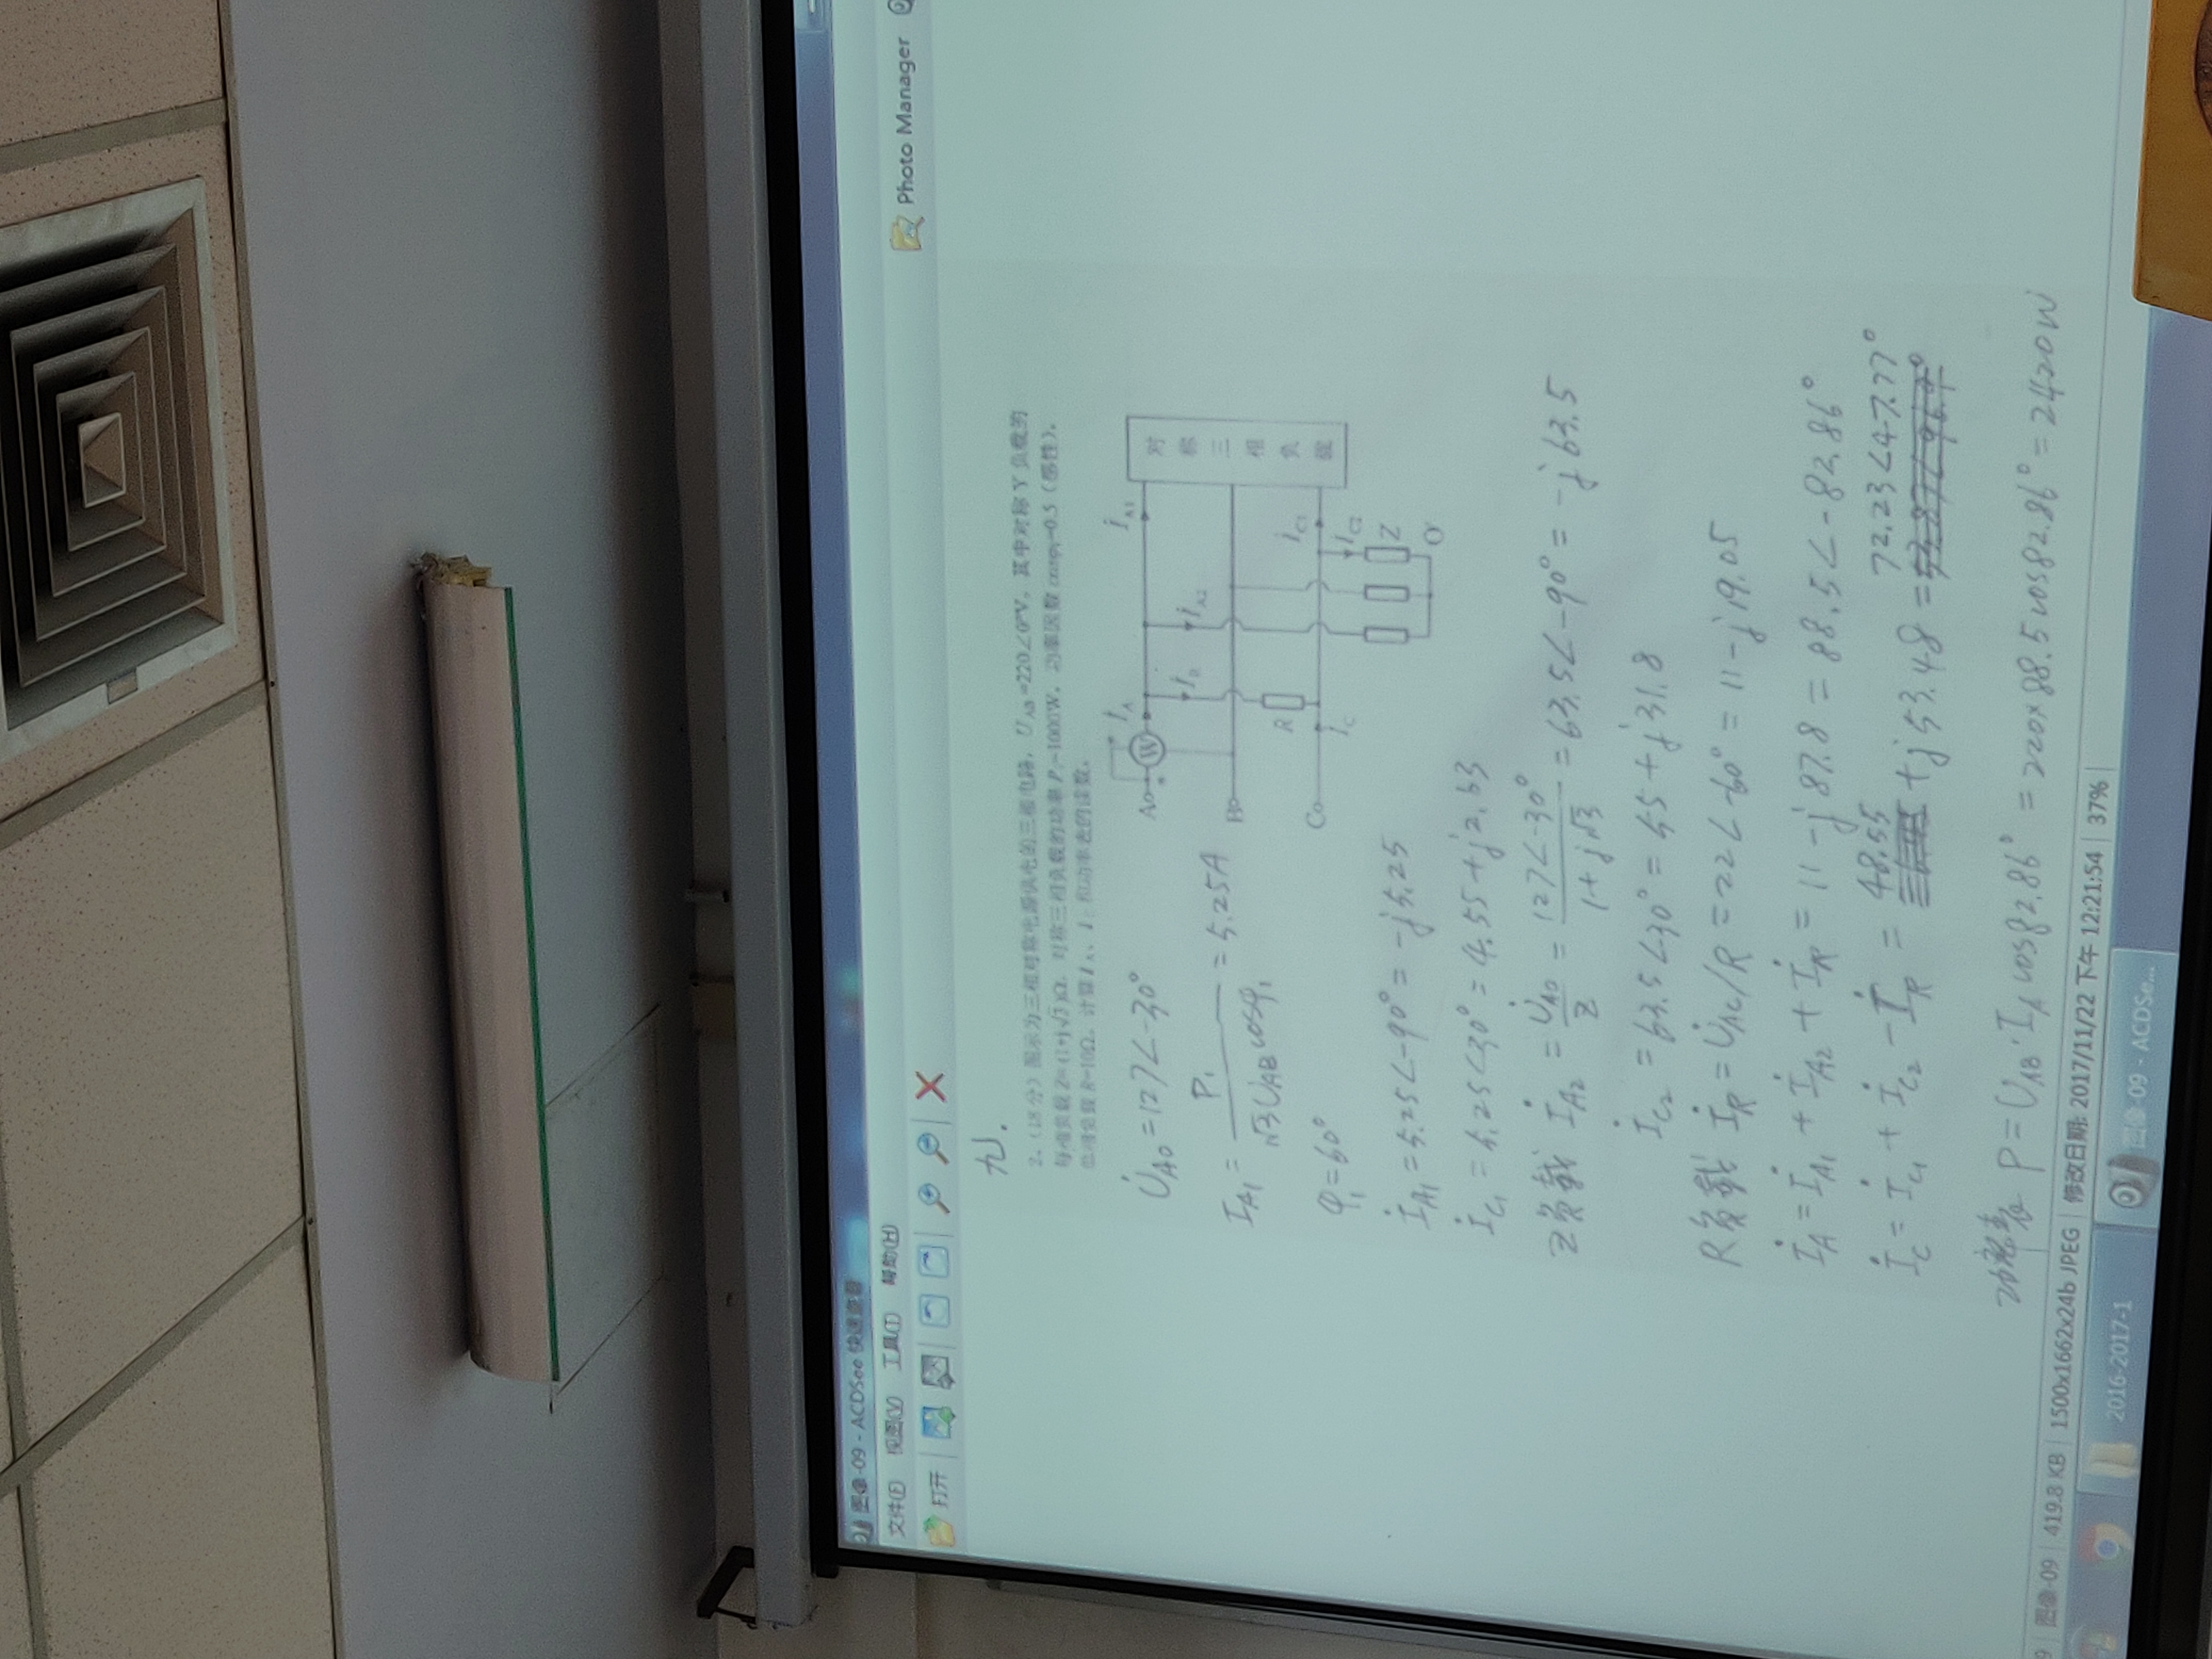 图像-09 - ACDSee 快速查看
文件(F) 视图(V) 工具(T) 帮助(H)
打开
Photo Manager
九.
2、(18分) 图示为三相对称电源供电的三相电路, U̇AB=220∠0°V。其中对称Y负载的
每相负载 Z=(1+j√3)Ω, 对称三相负载的功率 P₁=1000W, 功率因数 cosφ₁=0.5 (感性)。
单相负载 R=10Ω。计算 İA、İC 和功率表的读数。
U̇AO = 127∠-30°
IA1 = P₁ / (√3 UAB cosφ₁) = 5.25A
φ₁ = 60°
İA1 = 5.25∠-90° = -j5.25
İC1 = 5.25∠30° = 4.55+j2.63
Z负载 İA2 = U̇AO / Z = 127∠-30° / (1+j√3) = 63.5∠-90° = -j63.5
İC2 = 63.5∠30° = 55+j31.8
R负载 İR = U̇AC/R = 22∠-60° = 11-j19.05
İA = İA1 + İA2 + İR = 11-j87.8 = 88.5∠-82.86°
İC = İC1 + İC2 - İR = 48.55 + j53.48 = 72.23∠47.77°
功率表 P = UAB·IA cos82.86° = 220×88.5cos82.86° = 2420W
A
W
İA
İA1
İR
İA2
B
R
C
İC
İC1
İC2
Z
O'
对称三相负载
9 图像-09 419.8 KB 1500x1662x24b JPEG 修改日期: 2017/11/22 下午 12:21:54 37%
2016-2017-1
图像-09 - ACDSe...